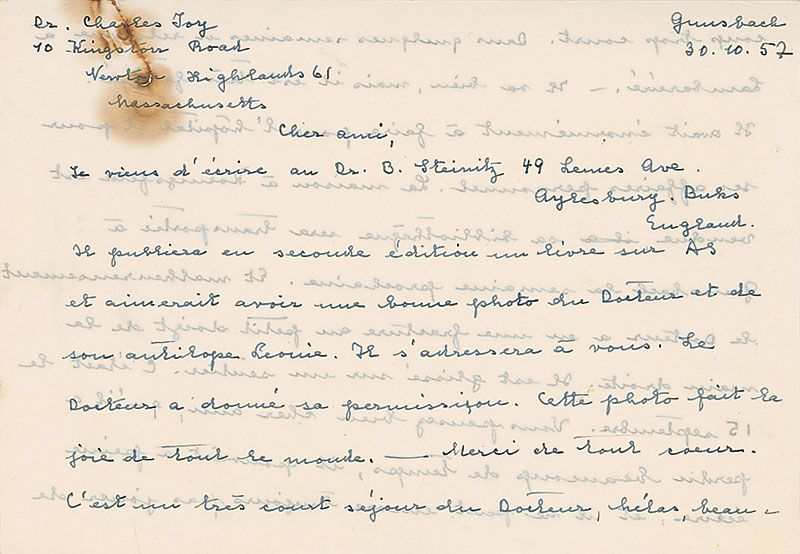 Dr. Charles Joy
Gunsbach
10 Kingston Road
30.10.57
Newton Highlands 61
Massachusetts
Cher ami,
Je viens d'écrire au Dr. B. Steinitz 49 Lemes Ave.
Aylesbury. Buks
England.
Il publiera en seconde édition un livre sur AS
et aimerait avoir une bonne photo du Docteur et de
son antilope Leonie. Il s'adressera à vous. Le
Docteur a donné sa permission. Cette photo fait la
joie de tout le monde. — Merci de tout coeur.
C'est un très court séjour du Docteur, hélas, beau-